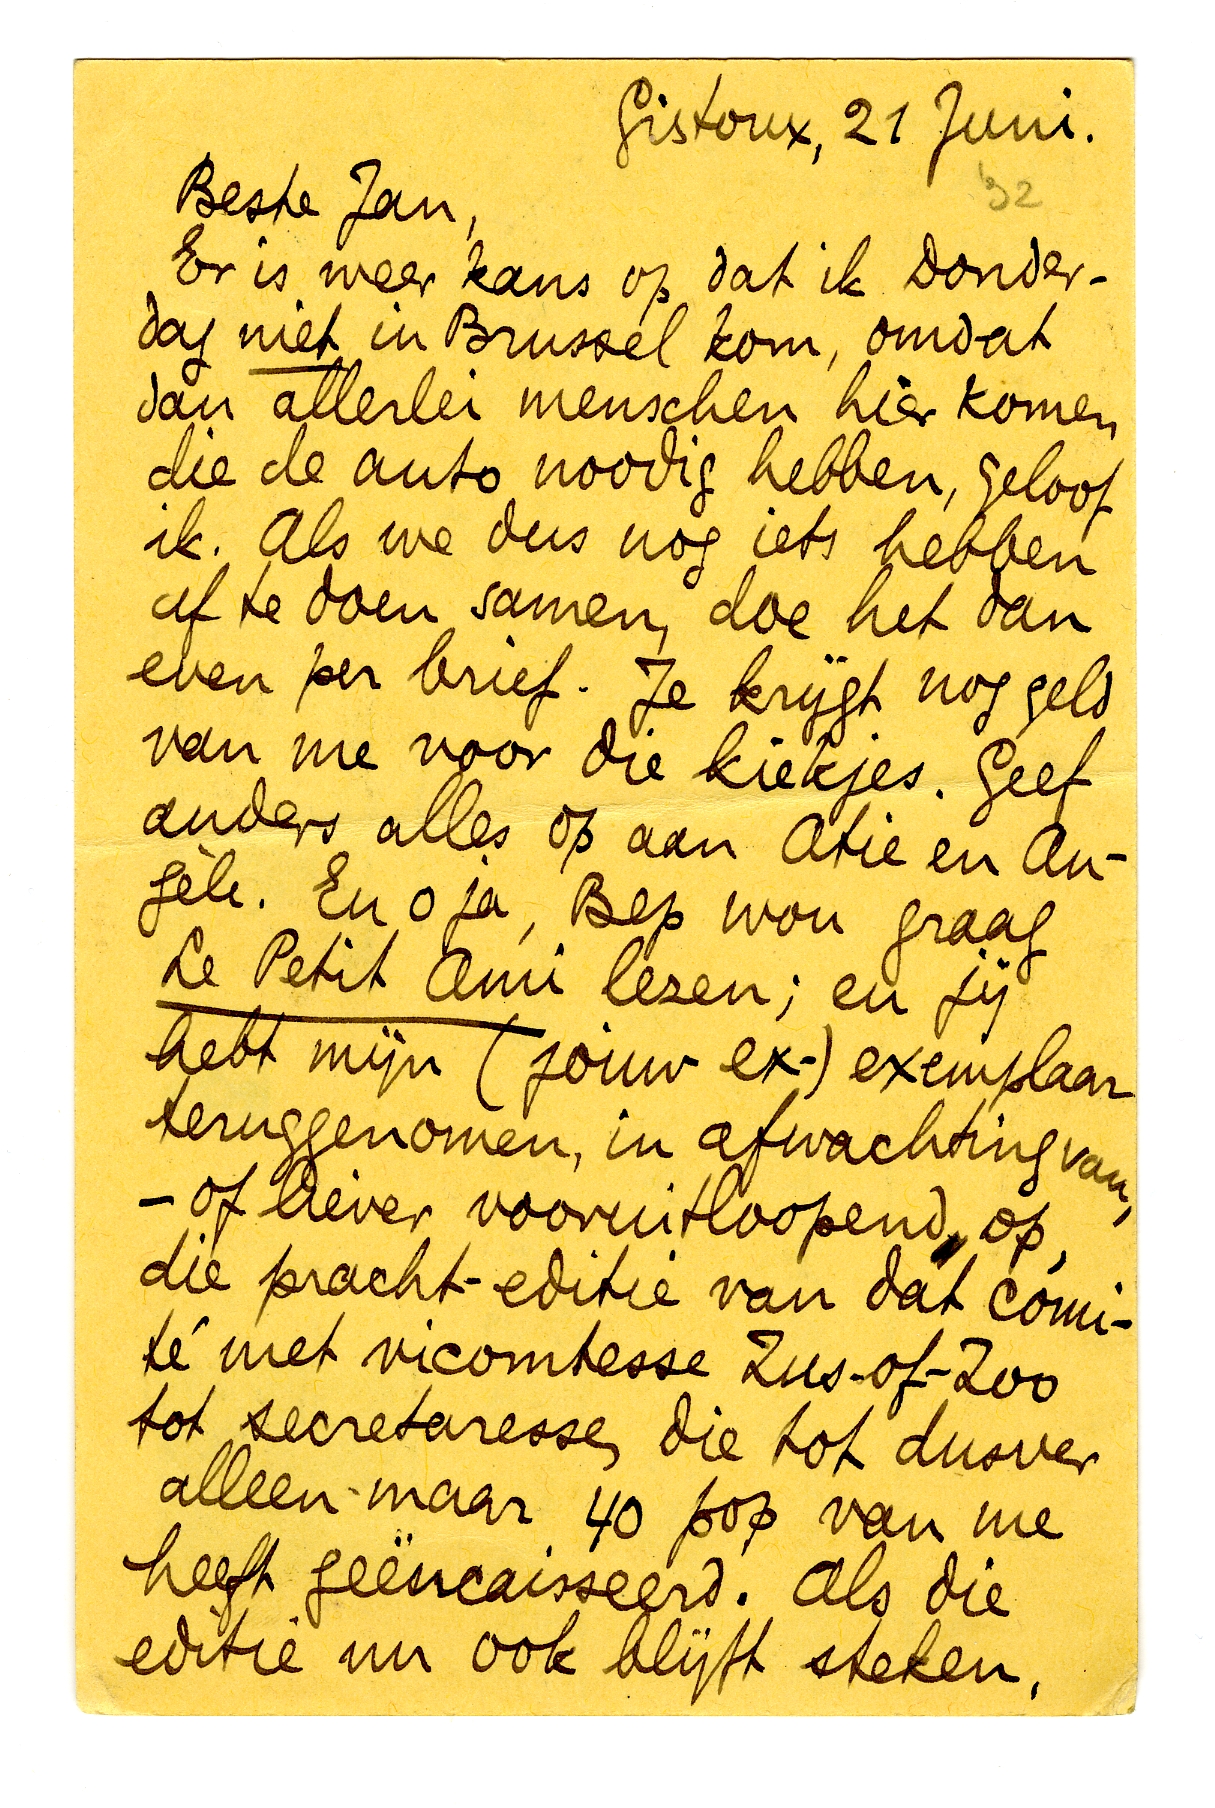 Gistoux, 21 Juni.
'32
Beste Jan,
Er is weer kans op dat ik Donder-
dag niet in Brussel kom, omdat
dan allerlei menschen hier komen
die de auto noodig hebben, geloof
ik. Als we dus nog iets hebben
af te doen samen, doe het dan
even per brief. Je krijgt nog geld
van me voor die kiekjes. Geef
anders alles op aan Atie en An-
gèle. En o ja, Bep wou graag
Le Petit Ami lezen; en jij
hebt mijn (jouw ex-) exemplaar
teruggenomen, in afwachting van,
– of liever vooruitloopend, op,
die pracht-editie van dàt comi-
té met vicomtesse Zus-of-Zoo
tot secretaresse, die tot dusver
alleen maar 40 pop van me
heeft geëncaisseerd. Als die
editie nu ook blijft steken,